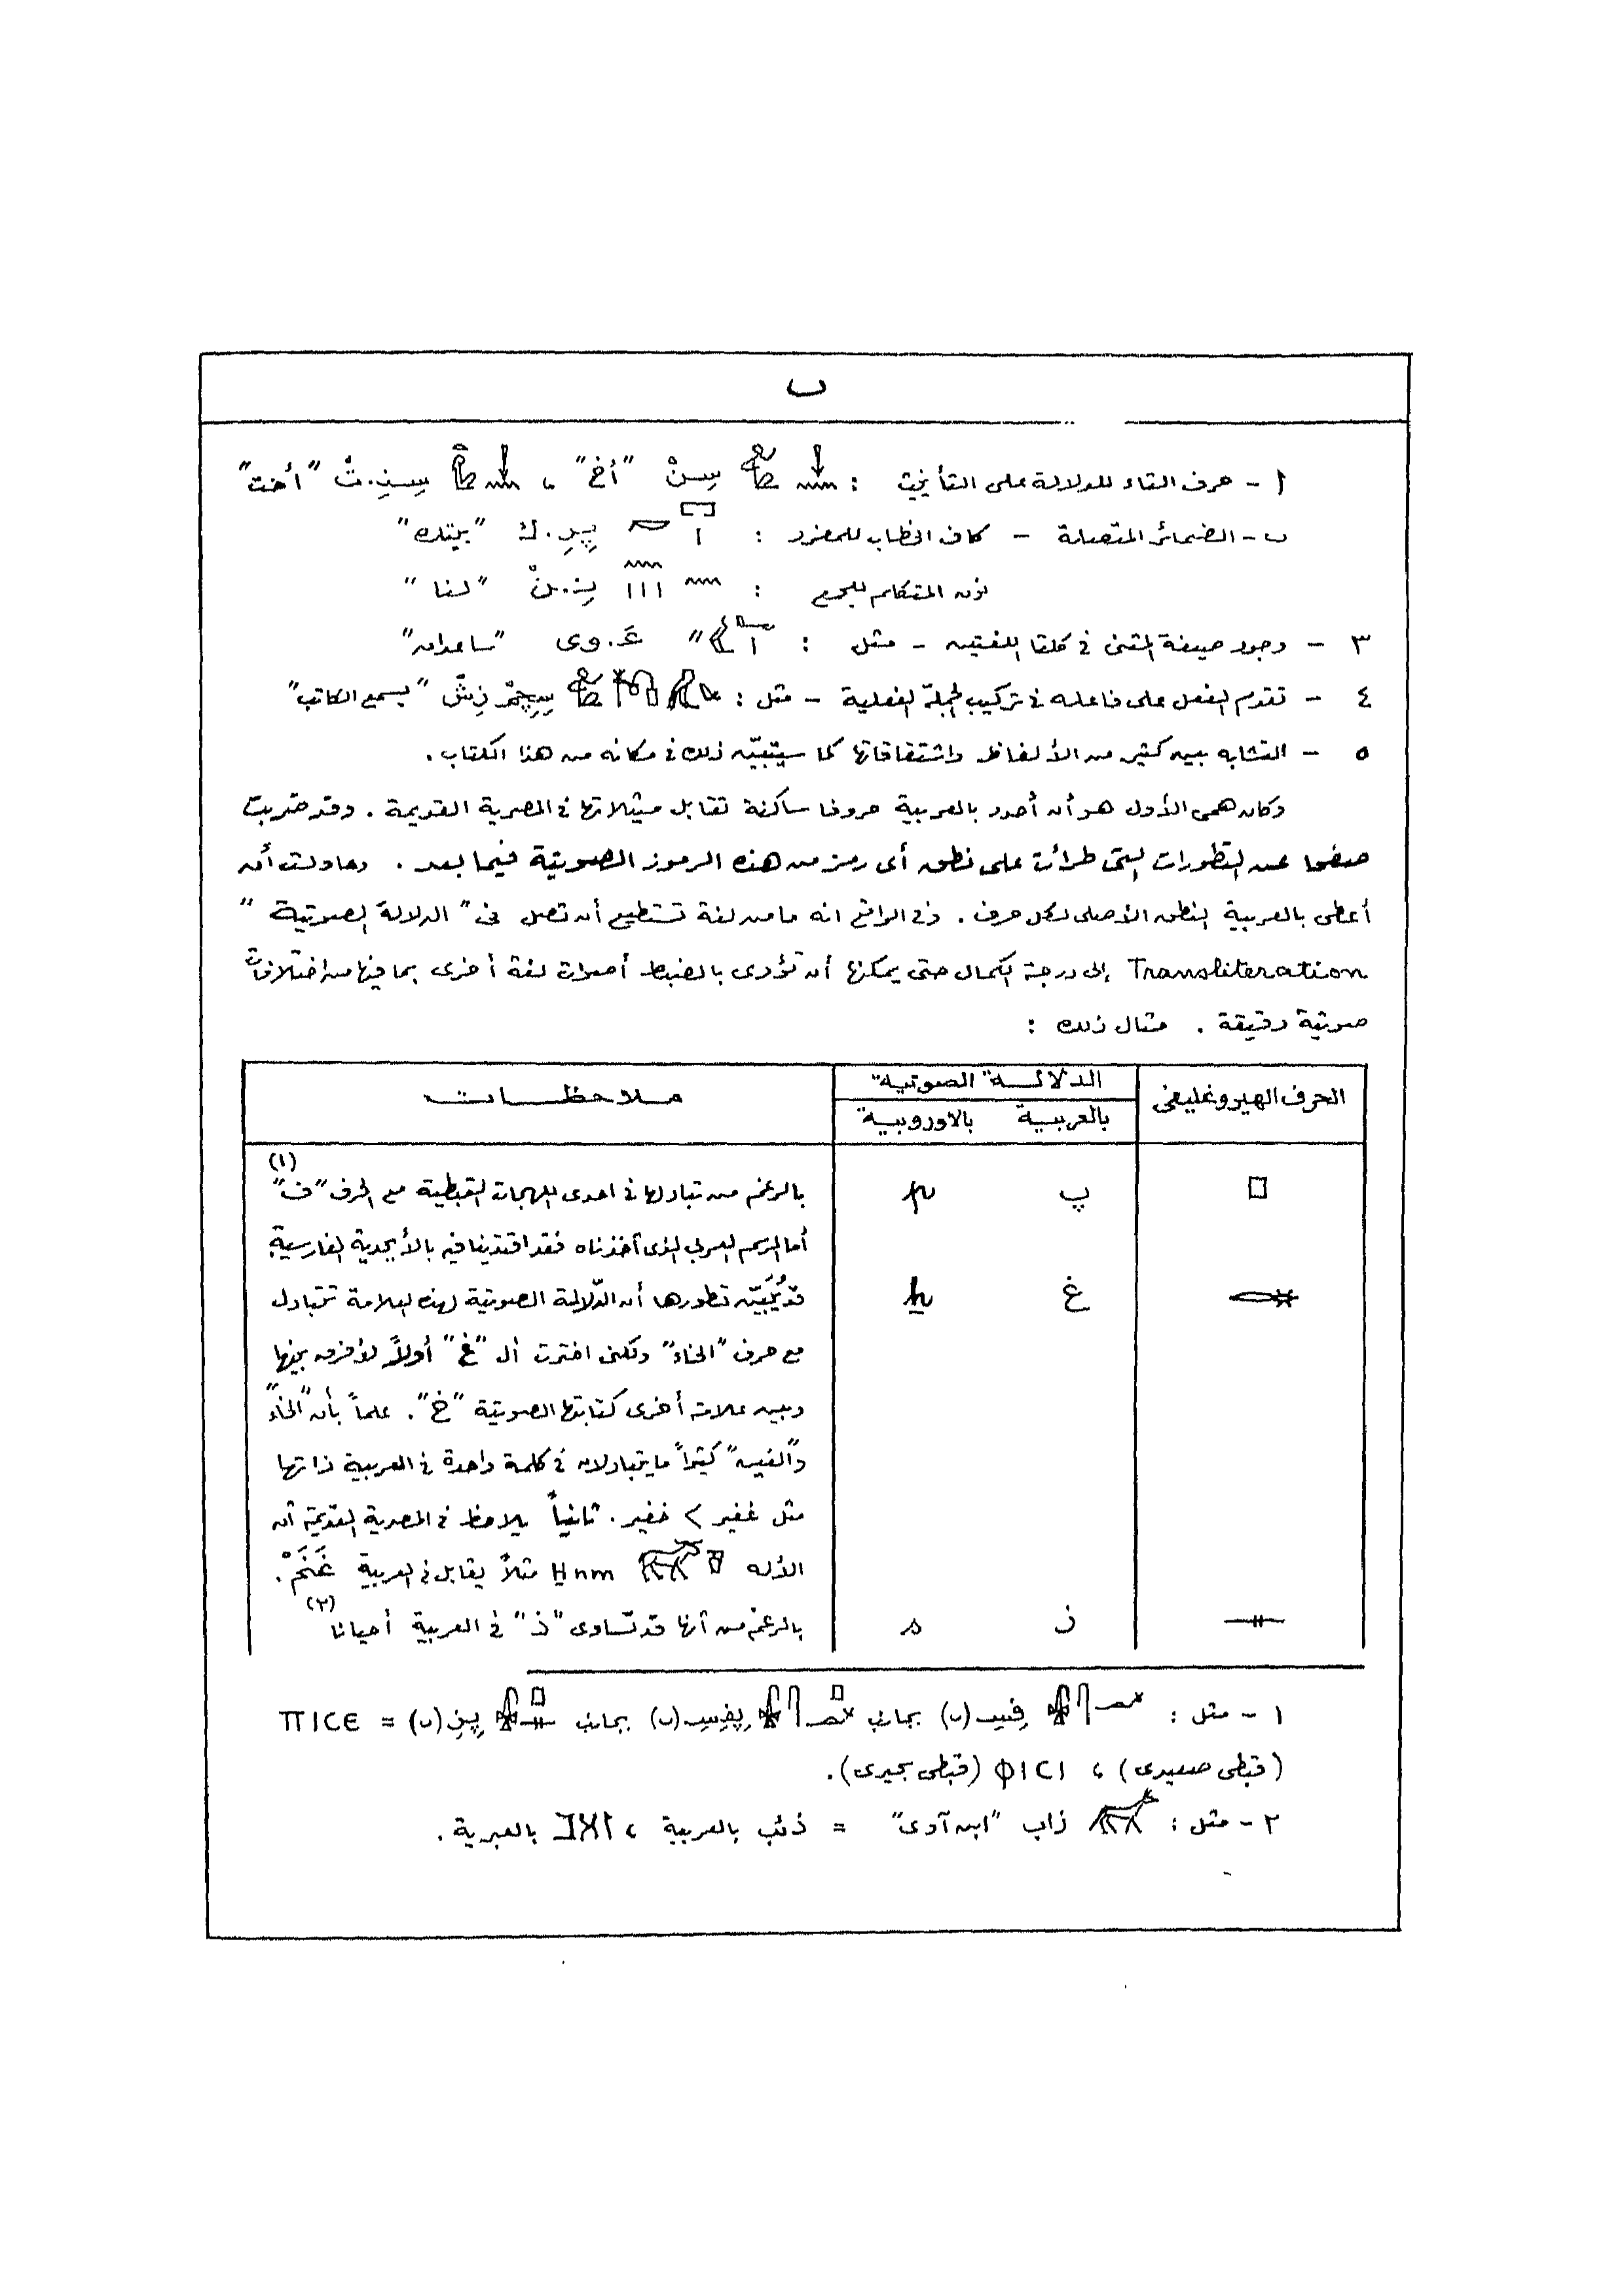 ب
ا - حرف التاء للدلالة على التأنيث : سِنْ "أخ" ، سِنِ.تْ "أخت"
ب - الضمائر المتصلة - كاف الخطاب للمفرد : پِرِ.كْ "بيتك"
نون المتكلم للجمع : نِ.نْ "لنا"
٣ - وجود صيغة المثنى في كلتا اللغتين - مثل : عَ.وى "ساعدان"
٤ - تقدم الفعل على فاعله في تركيب الجملة الفعلية - مثل : "يسمع الكاتب"
٥ - التشابه بين كثير من الألفاظ واشتقاقاتها كما سيتبيّن ذلك في مكانه من هذا الكتاب .
وكان همى الأول هو أن أحدد بالعربية حروفا ساكنة تقابل مثيلاتها في المصرية القديمة . وقد ضربت
صفحا عن التطورات التى طرأت على نطق أى رمز من هذه الرموز الصوتية فيما بعد . وحاولت أن
أعطى بالعربية النطق الأصلى لكل حرف . وفي الواقع انه ما من لغة تستطيع أن تصل فى "الدلالة الصوتية"
Transliteration إلى درجة الكمال حتى يمكنها أن تؤدى بالضبط أصوات لغة أخرى بما فيها من اختلافات
صوتية دقيقة . مثال ذلك :
الحرف الهيروغليفى الدلالة الصوتية ملاحظات
بالعربية بالاوروبية
پ p بالرغم من تبادلها في احدى اللهجات القبطية مع الحرف "ف" (١)
أما الرسم العربى الذى أخذناه فقد اقتدينا فيه بالأبجدية الفارسية
غ ẖ قد يُبيّن تطورها أن الدّلالة الصوتية لهذه العلامة تتبادل
مع حرف "الخاء" ولكنى اخترت أل "غ" أولاً لأفرق بينها
وبين علامة أخرى كتابتها الصوتية "خ". علماً بأن "الخاء"
و"الغين" كثيراً ما يتبادلان في كلمة واحدة في العربية ذاتها
مثل غفير > خفير . ثانياً يلاحظ في المصرية القديمة أن
الأله H̱nm مثلاً يقابل في العربية غَنَمْ .
ز s بالرغم من أنها قد تساوى "ذ" في العربية أحيانا (٢)
١ - مثل : (ب) بجانب (ب) بجانب (ب) = ΠΙCЄ
(قبطى صعيدى) ، ΦΙCΙ (قبطى بحيرى).
٢ - مثل : زاب "ابن آوى" = ذئب بالعربية ، זאב بالعبرية .